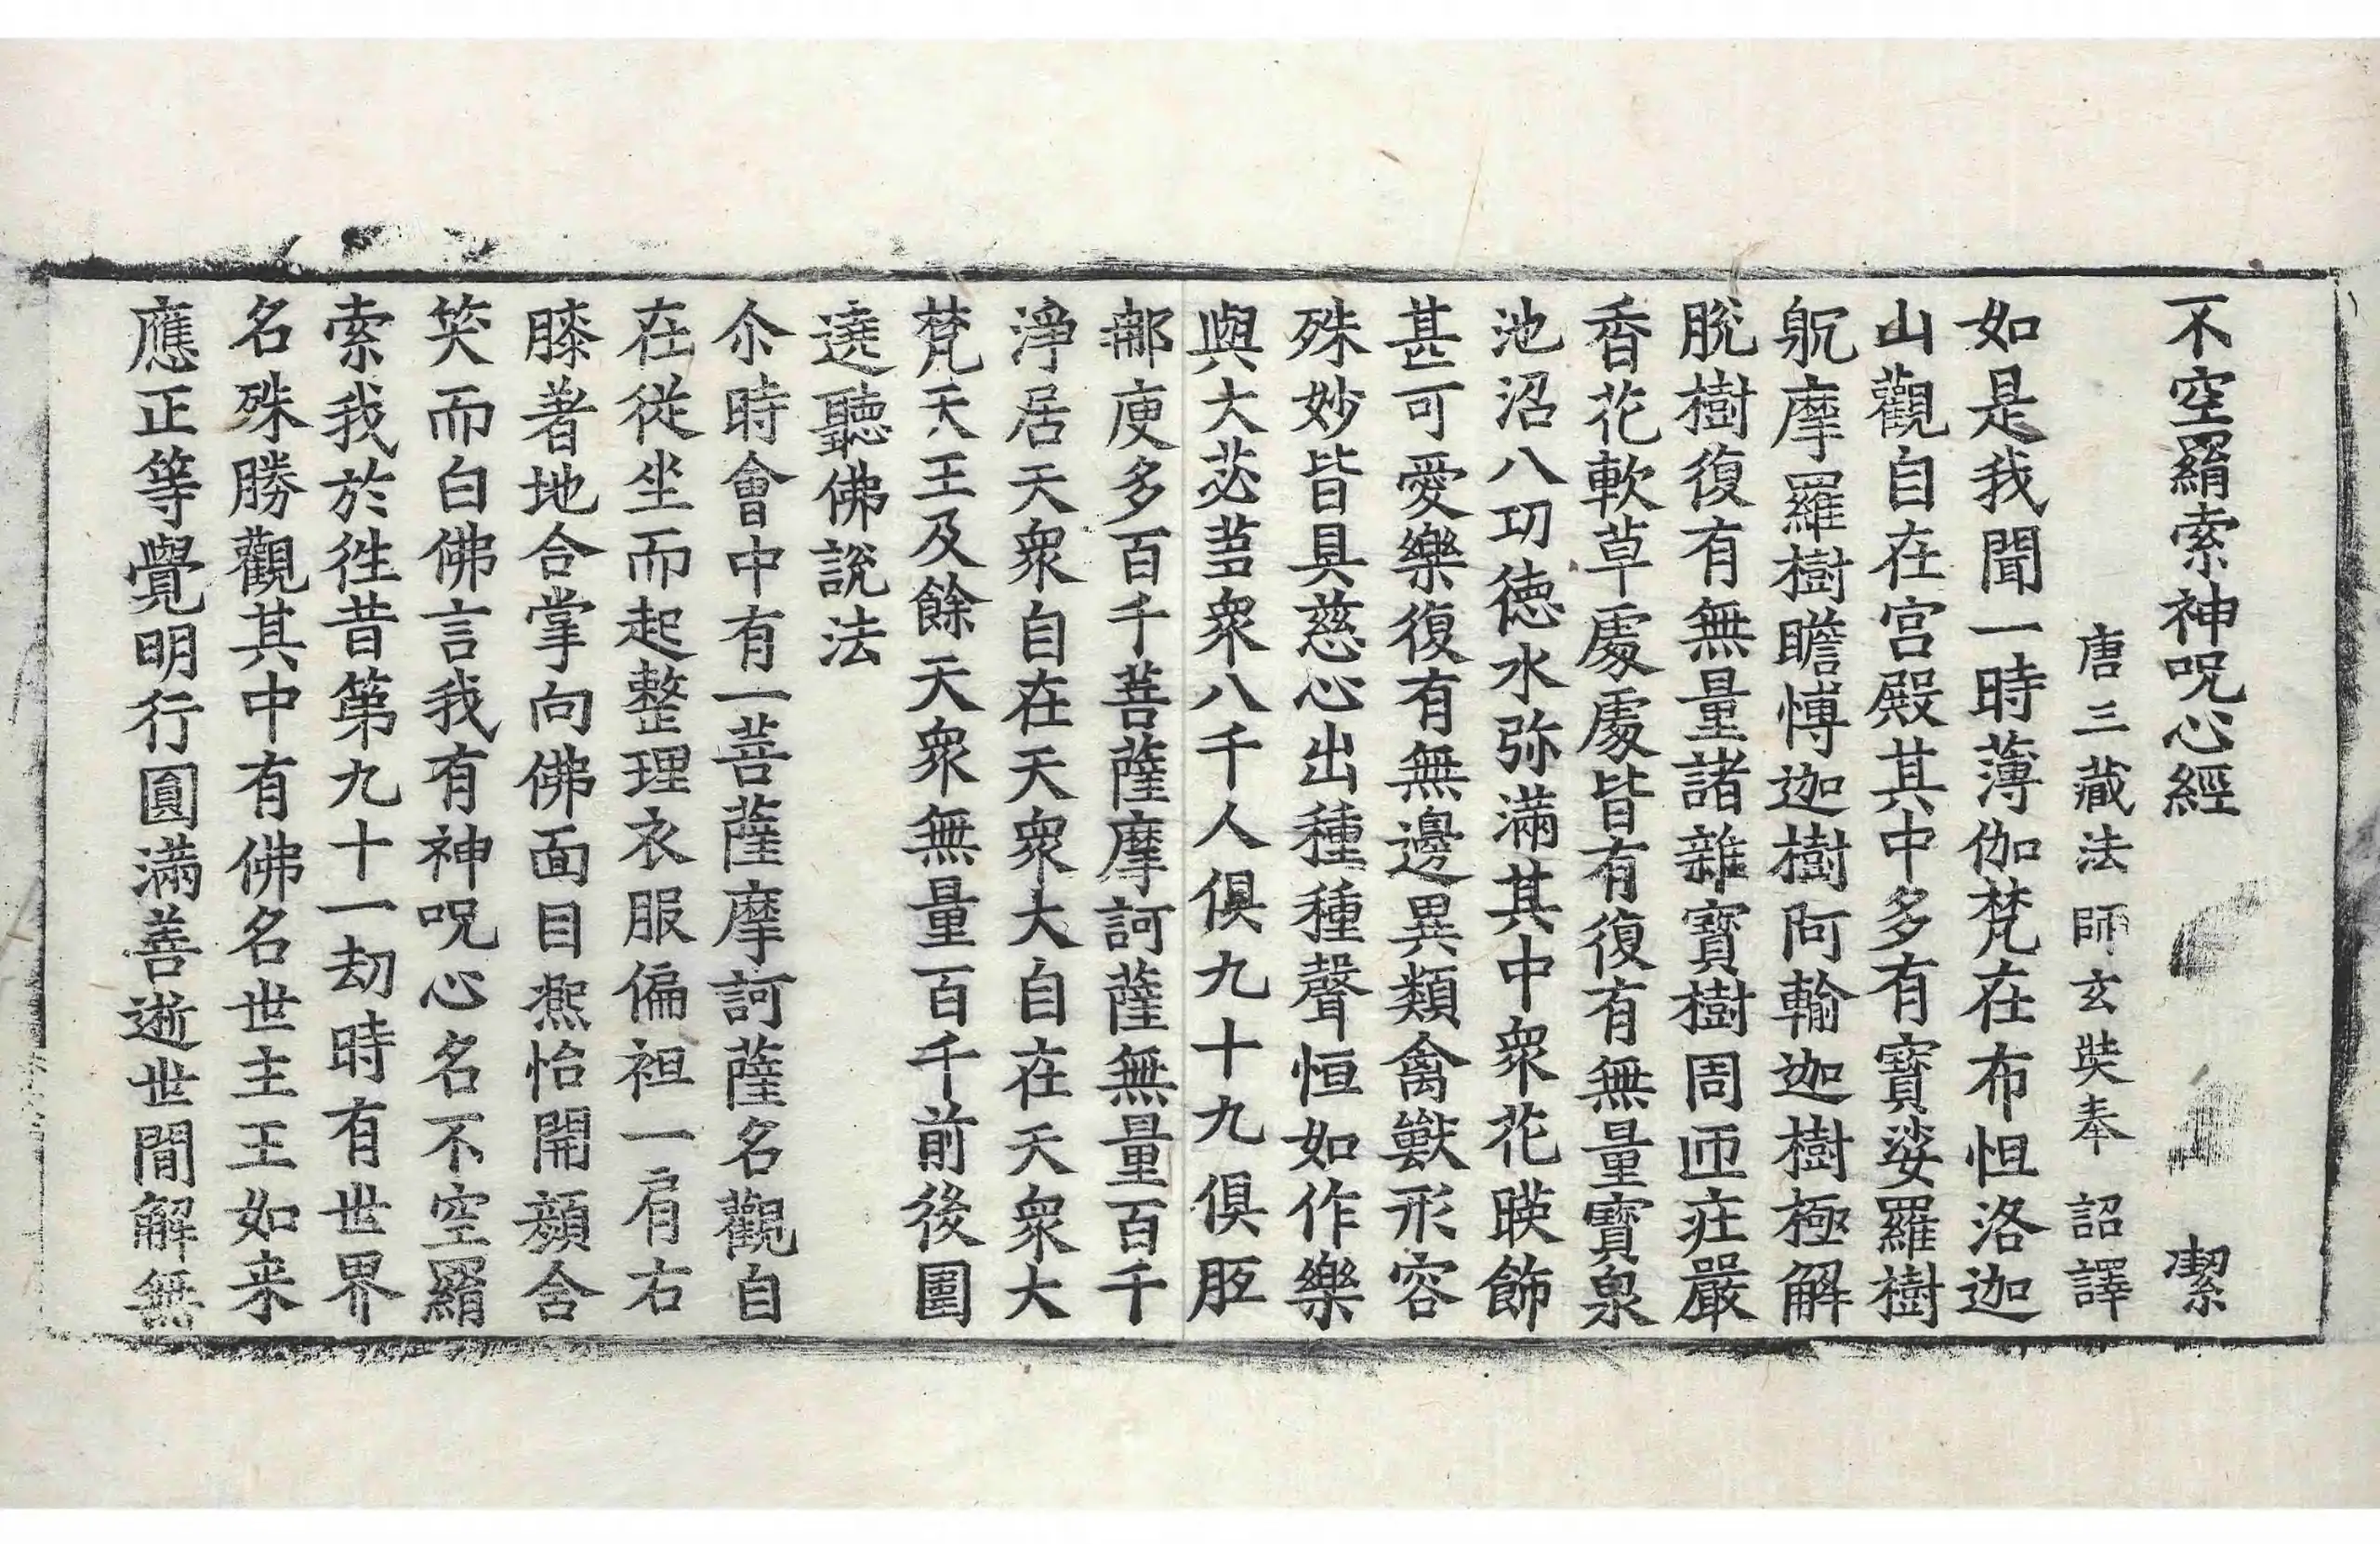 不空羂索神呪心經 潔
唐三藏法師玄奘奉 詔譯
如是我聞一時薄伽梵在布怛洛迦
山觀自在宮殿其中多有寳娑羅樹
躭摩羅樹瞻博迦樹阿輸迦樹極解
脫樹復有無量諸雜寳樹周匝庄嚴
香花軟草處處皆有復有無量寳泉
池沼八功德水弥滿其中衆花暎飾
甚可愛樂復有無邊異類禽獸形容
殊妙皆具慈心出種種聲恒如作樂
與大苾蒭衆八千人俱九十九俱胝
那庾多百千菩薩摩訶薩無量百千
淨居天衆自在天衆大自在天衆大
梵天王及餘天衆無量百千前後圍
遶聽佛說法
尒時會中有一菩薩摩訶薩名觀自
在從坐而起整理衣服偏袒一肩右
膝著地合掌向佛面目熙怡開顏含
笑而白佛言我有神呪心名不空羂
索我於徃昔第九十一劫時有世界
名殊勝觀其中有佛名世主王如来
應正等覺明行圓滿善逝世間解無